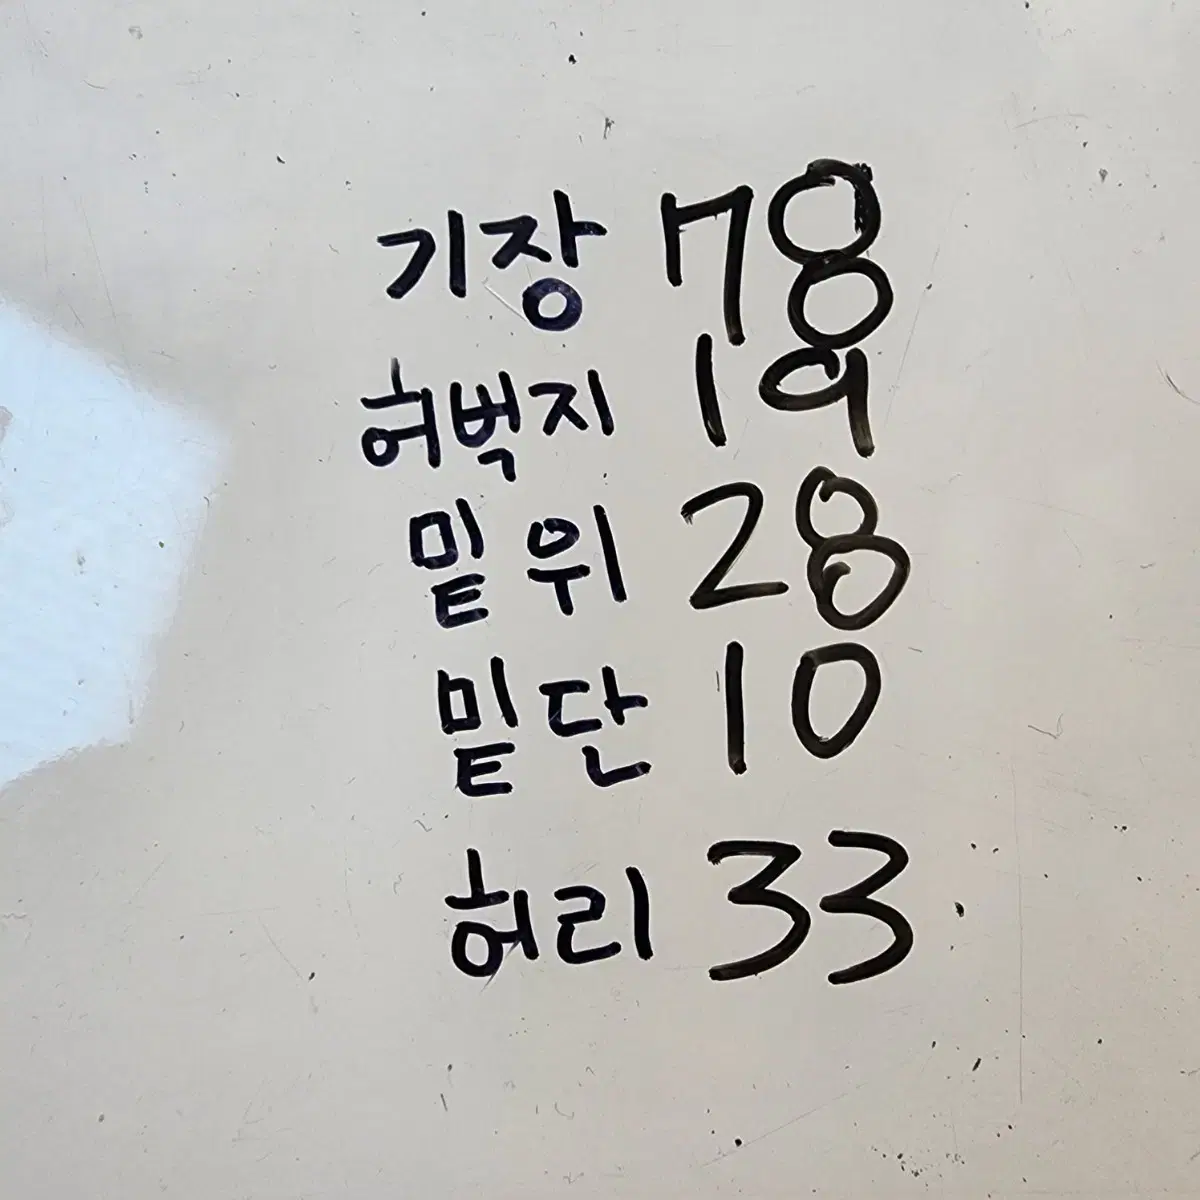 기장 78
허벅지 19
밑위 28
밑단 10
허리 33